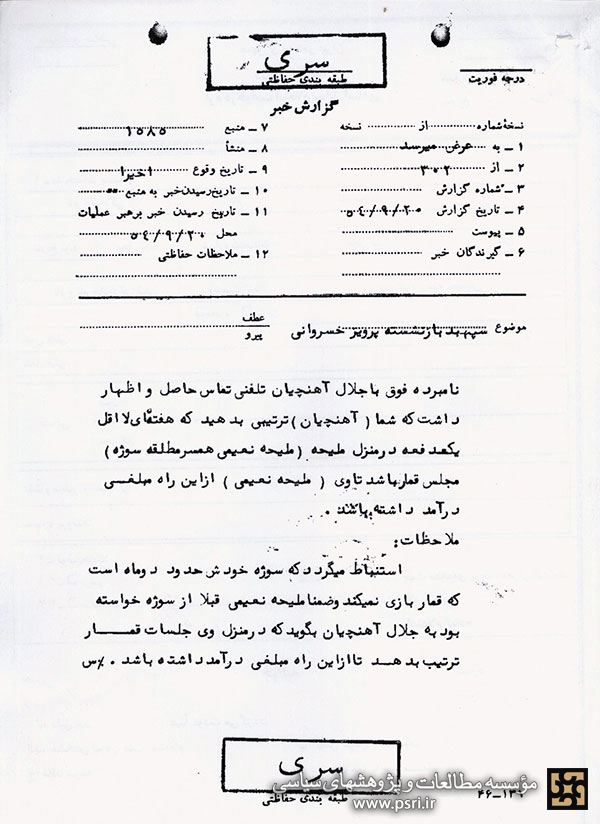 سری
طبقه بندی حفاظتی
درجه فوریت
گزارش خبر
نسخهٔ شماره ........ از ........ نسخه
۱ ـ به عرض میرسد
۲ ـ از ۳۰۲
۳ ـ شماره گزارش
۴ ـ تاریخ گزارش ۵۴/۹/۲۰
۵ ـ پیوست
۶ ـ گیرندگان خبر
۷ ـ منبع ۱۵۸۵
۸ ـ منشأ
۹ ـ تاریخ وقوع اخیرا
۱۰ ـ تاریخ رسیدن خبر به منبع ـــ
۱۱ ـ تاریخ رسیدن خبر برهبر عملیات
محل ۵۴/۹/۲۰
۱۲ ـ ملاحظات حفاظتی
موضوع سپهبد بازنشسته پرویز خسروانی
عطف
پیرو
نامبرده فوق با جلال آهنچیان تلفنی تماس حاصل و اظهار
داشت که شما (آهنچیان) ترتیبی بدهید که هفته‌ای لااقل
یکدفعه در منزل ملیحه (ملیحه نعیمی همسر مطلقه سوژه)
مجلس قمار باشد تا وی (ملیحه نعیمی) از این راه مبلغی
درآمد داشته باشد.
ملاحظات:
استنباط میگردد که سوژه خودش حدود دو ماه است
که قمار بازی نمیکند و ضمنا ملیحه نعیمی قبلا از سوژه خواسته
بود به جلال آهنچیان بگوید که در منزل وی جلسات قمار
ترتیب بدهد تا از این راه مبلغی درآمد داشته باشد. /س
سری
طبقه بندی حفاظتی
مؤسسه مطالعات و پژوهشهای سیاسی
www.psri.ir